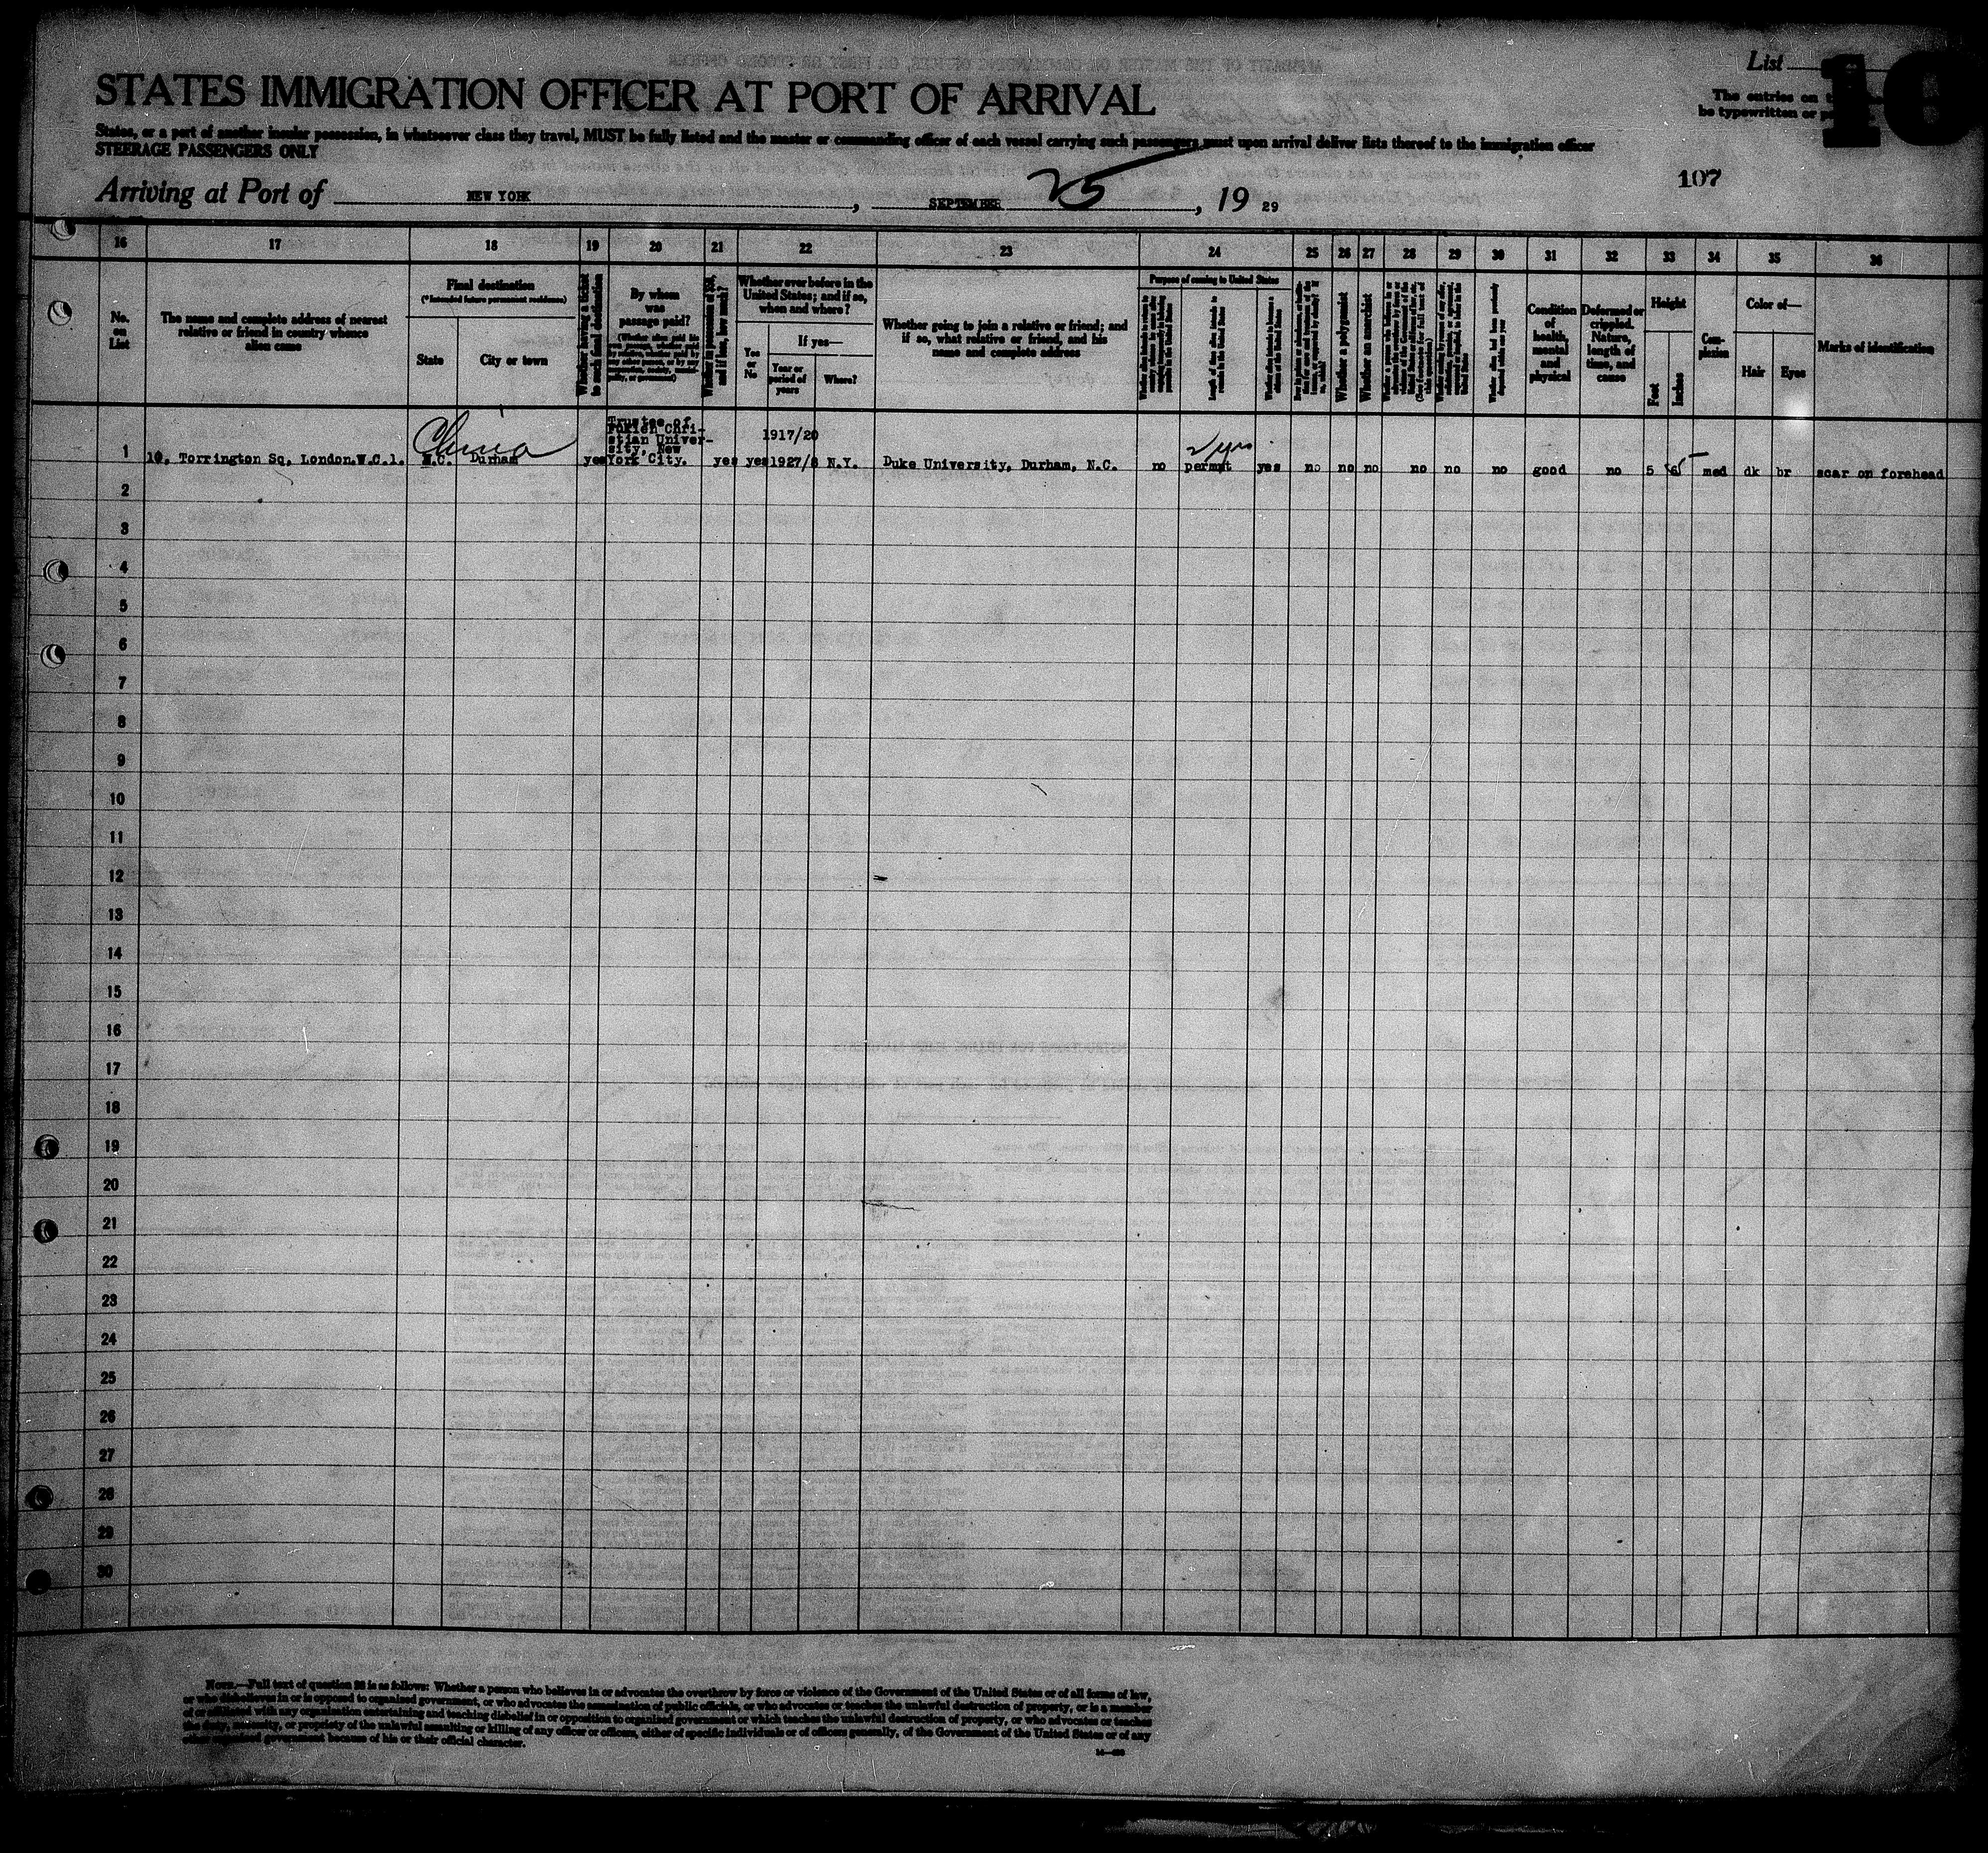 List
10
STATES IMMIGRATION OFFICER AT PORT OF ARRIVAL
The entries on
be typewritten or
States, or a port of another insular possession, in whatsoever class they travel, MUST be fully listed and the master or commanding officer of each vessel carrying such passengers must upon arrival deliver lists thereof to the immigration officer
STEERAGE PASSENGERS ONLY
107
Arriving at Port of NEW YORK, SEPTEMBER 25, 19 29
16 17 18 19 20 21 22 23 24 25 26 27 28 29 30 31 32 33 34 35 36
No. on List
The name and complete address of nearest relative or friend in country whence alien came
Final destination
(*Intended future permanent residence)
State
City or town
Whether having a ticket to such final destination
By whom was passage paid?
Whether in possession of $50, and if less, how much?
Whether ever before in the United States; and if so, when and where?
Yes or No
If yes—
Year or period of years
Where?
Whether going to join a relative or friend; and if so, what relative or friend, and his name and complete address
Purpose of coming to United States
Length of time alien intends to remain in the United States
Whether alien intends to become a citizen of the United States
Whether a polygamist
Whether an anarchist
Condition of health, mental and physical
Deformed or crippled. Nature, length of time, and cause
Height
Feet
Inches
Complexion
Color of—
Hair
Eyes
Marks of identification
China
Trustee of
Fukien Chri-
stian Univer-
sity, New
York City.
1917/20
2 yrs
1 10, Torrington Sq, London.W.C.1. N.C. Durham yes yes yes 1927/8 N.Y. Duke University, Durham, N.C. no permit yes no no no no no no good no 5 6 5 med dk br scar on forehead
2
3
4
5
6
7
8
9
10
11
12
13
14
15
16
17
18
19
20
21
22
23
24
25
26
27
28
29
30
NOTE.—Full text of question 28 is as follows: Whether a person who believes in or advocates the overthrow by force or violence of the Government of the United States or of all forms of law,
or who disbelieves in or is opposed to organized government, or who advocates the assassination of public officials, or who advocates or teaches the unlawful destruction of property, or is a member
of or affiliated with any organization entertaining and teaching disbelief in or opposition to organized government or which teaches the unlawful destruction of property, or who advocates or teaches
the duty, necessity, or propriety of the unlawful assaulting or killing of any officer or officers, either of specific individuals or of officers generally, of the Government of the United States or of any
other organized government because of his or their official character.